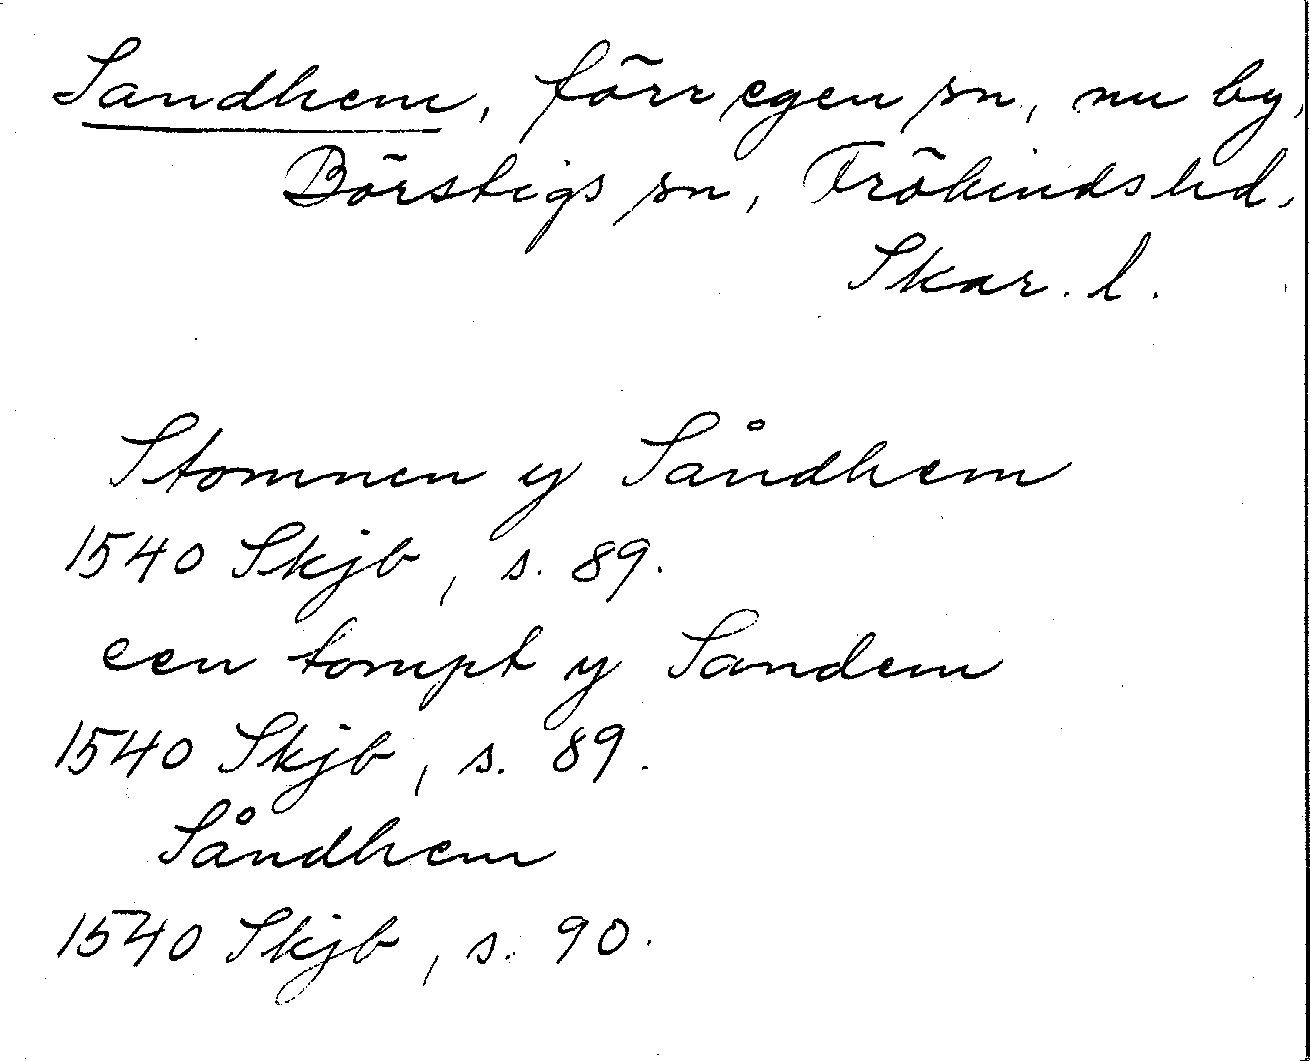 Sandhem, förr egen sn, nu by,
Börstigs sn, Frökinds hd.
Skar. l.
Stomnen y Såndhem
1540 Skjb, s. 89.
een tompt y Sandem
1540 Skjb, s. 89.
Såndhem
1540 Skjb, s. 90.